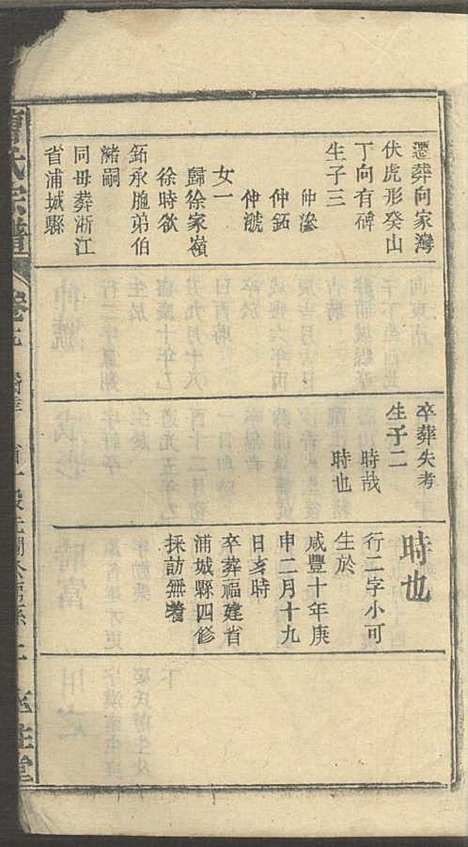 遷葬向家灣
伏虎形癸山
丁向有碑
生子三
仲滲
仲鉐
仲虠
女一
歸徐家嶺
徐時欲
鉐永胞弟伯
潴嗣
同毋葬淅江
省浦城縣
卒葬失考
生子二
時哉
時也
時也
行二字小可
生於
咸豐十年庚
申二月十九
日亥時
卒葬福建省
浦城縣四修
採訪無着
氏宗譜